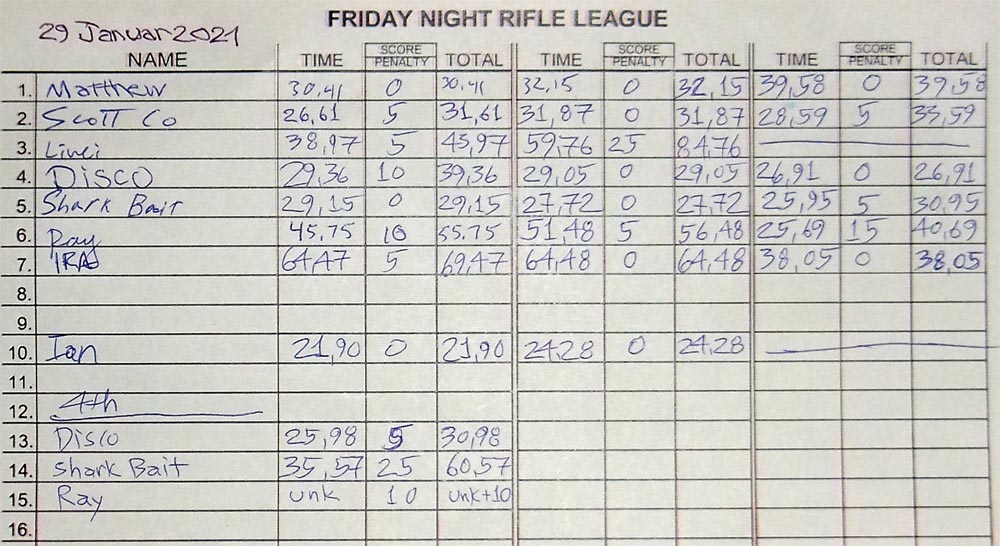 FRIDAY NIGHT RIFLE LEAGUE
29 Januar 2021
NAME TIME SCORE PENALTY TOTAL TIME SCORE PENALTY TOTAL TIME SCORE PENALTY TOTAL
1. Matthew 30,41 0 30,41 32,15 0 32,15 39,58 0 39,58
2. Scott Co 26,61 5 31,61 31,87 0 31,87 28,59 5 33,59
3. 38,97 5 43,97 59,76 25 84,76
4. Disco 29,36 10 39,36 29,05 0 29,05 26,91 0 26,91
5. Shark Bait 29,15 0 29,15 27,72 0 27,72 25,95 5 30,95
6. Ray 45,75 10 55.75 51,48 5 56,48 25,69 15 40,69
7. IRA 64,47 5 69,47 64,48 0 64,48 38,05 0 38,05
8.
9.
10. Ian 21,90 0 21,90 24,28 0 24,28
11.
12. 4th
13. Disco 25,98 5 30,98
14. Shark Bait 35,57 25 60,57
15. Ray unk 10 unk+10
16.